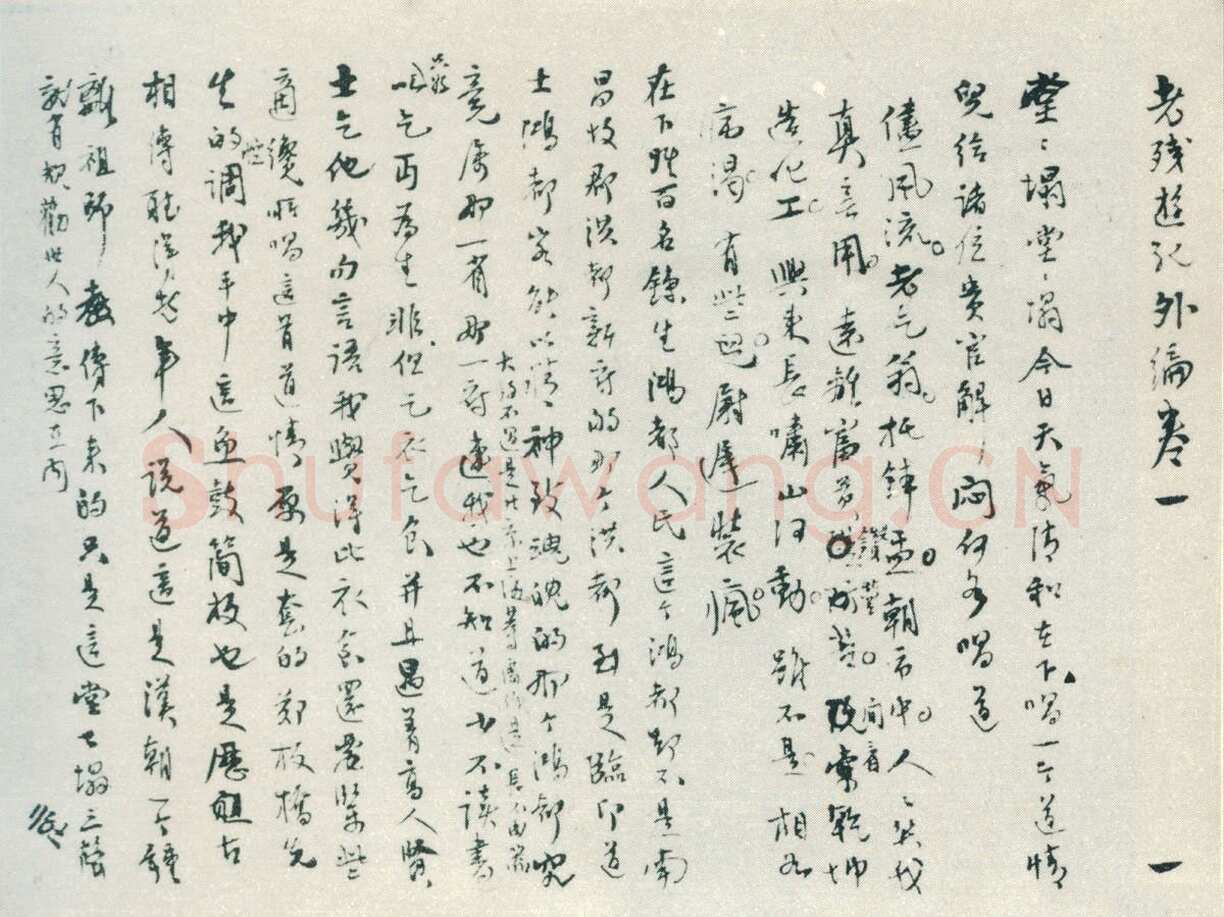 老残遊記外編卷一
堂堂塌堂堂塌今日天氣清和在下唱一个道情
兒给諸位贵官解解闷何如唱道
儘風流老乞翁托鉢盂朝市中人人笑我
真無用遠離富貴鑽營苦閒看乾坤
造化工興來長嘯山河動雖不是相如
病渴有些兒尉遲裝瘋
在下姓百名鍊生鴻都人氏這个鴻都却不是南
昌故郡洪都新府的那个洪都到是臨邛道
士鴻都客能以精神致魂魄的那个鴻都究
竟屬那一省那一府連我也不知道大約不過是北京上海等處便是少不讀書長不成器
只窮乞丐為生非但乞衣乞食并且遇着高人賢
士乞他幾句言語我覺得比衣食還要緊些
適纔所唱這首道情原是套的鄭板橋先
生的調我手中這魚鼓簡板也是歷祖古
相傳聽得老年人說道這是漢朝一个鍾
離祖師傳下來的只是這堂堂塌三聲
就有勸世人的意思在內
一
Shufawang.CN